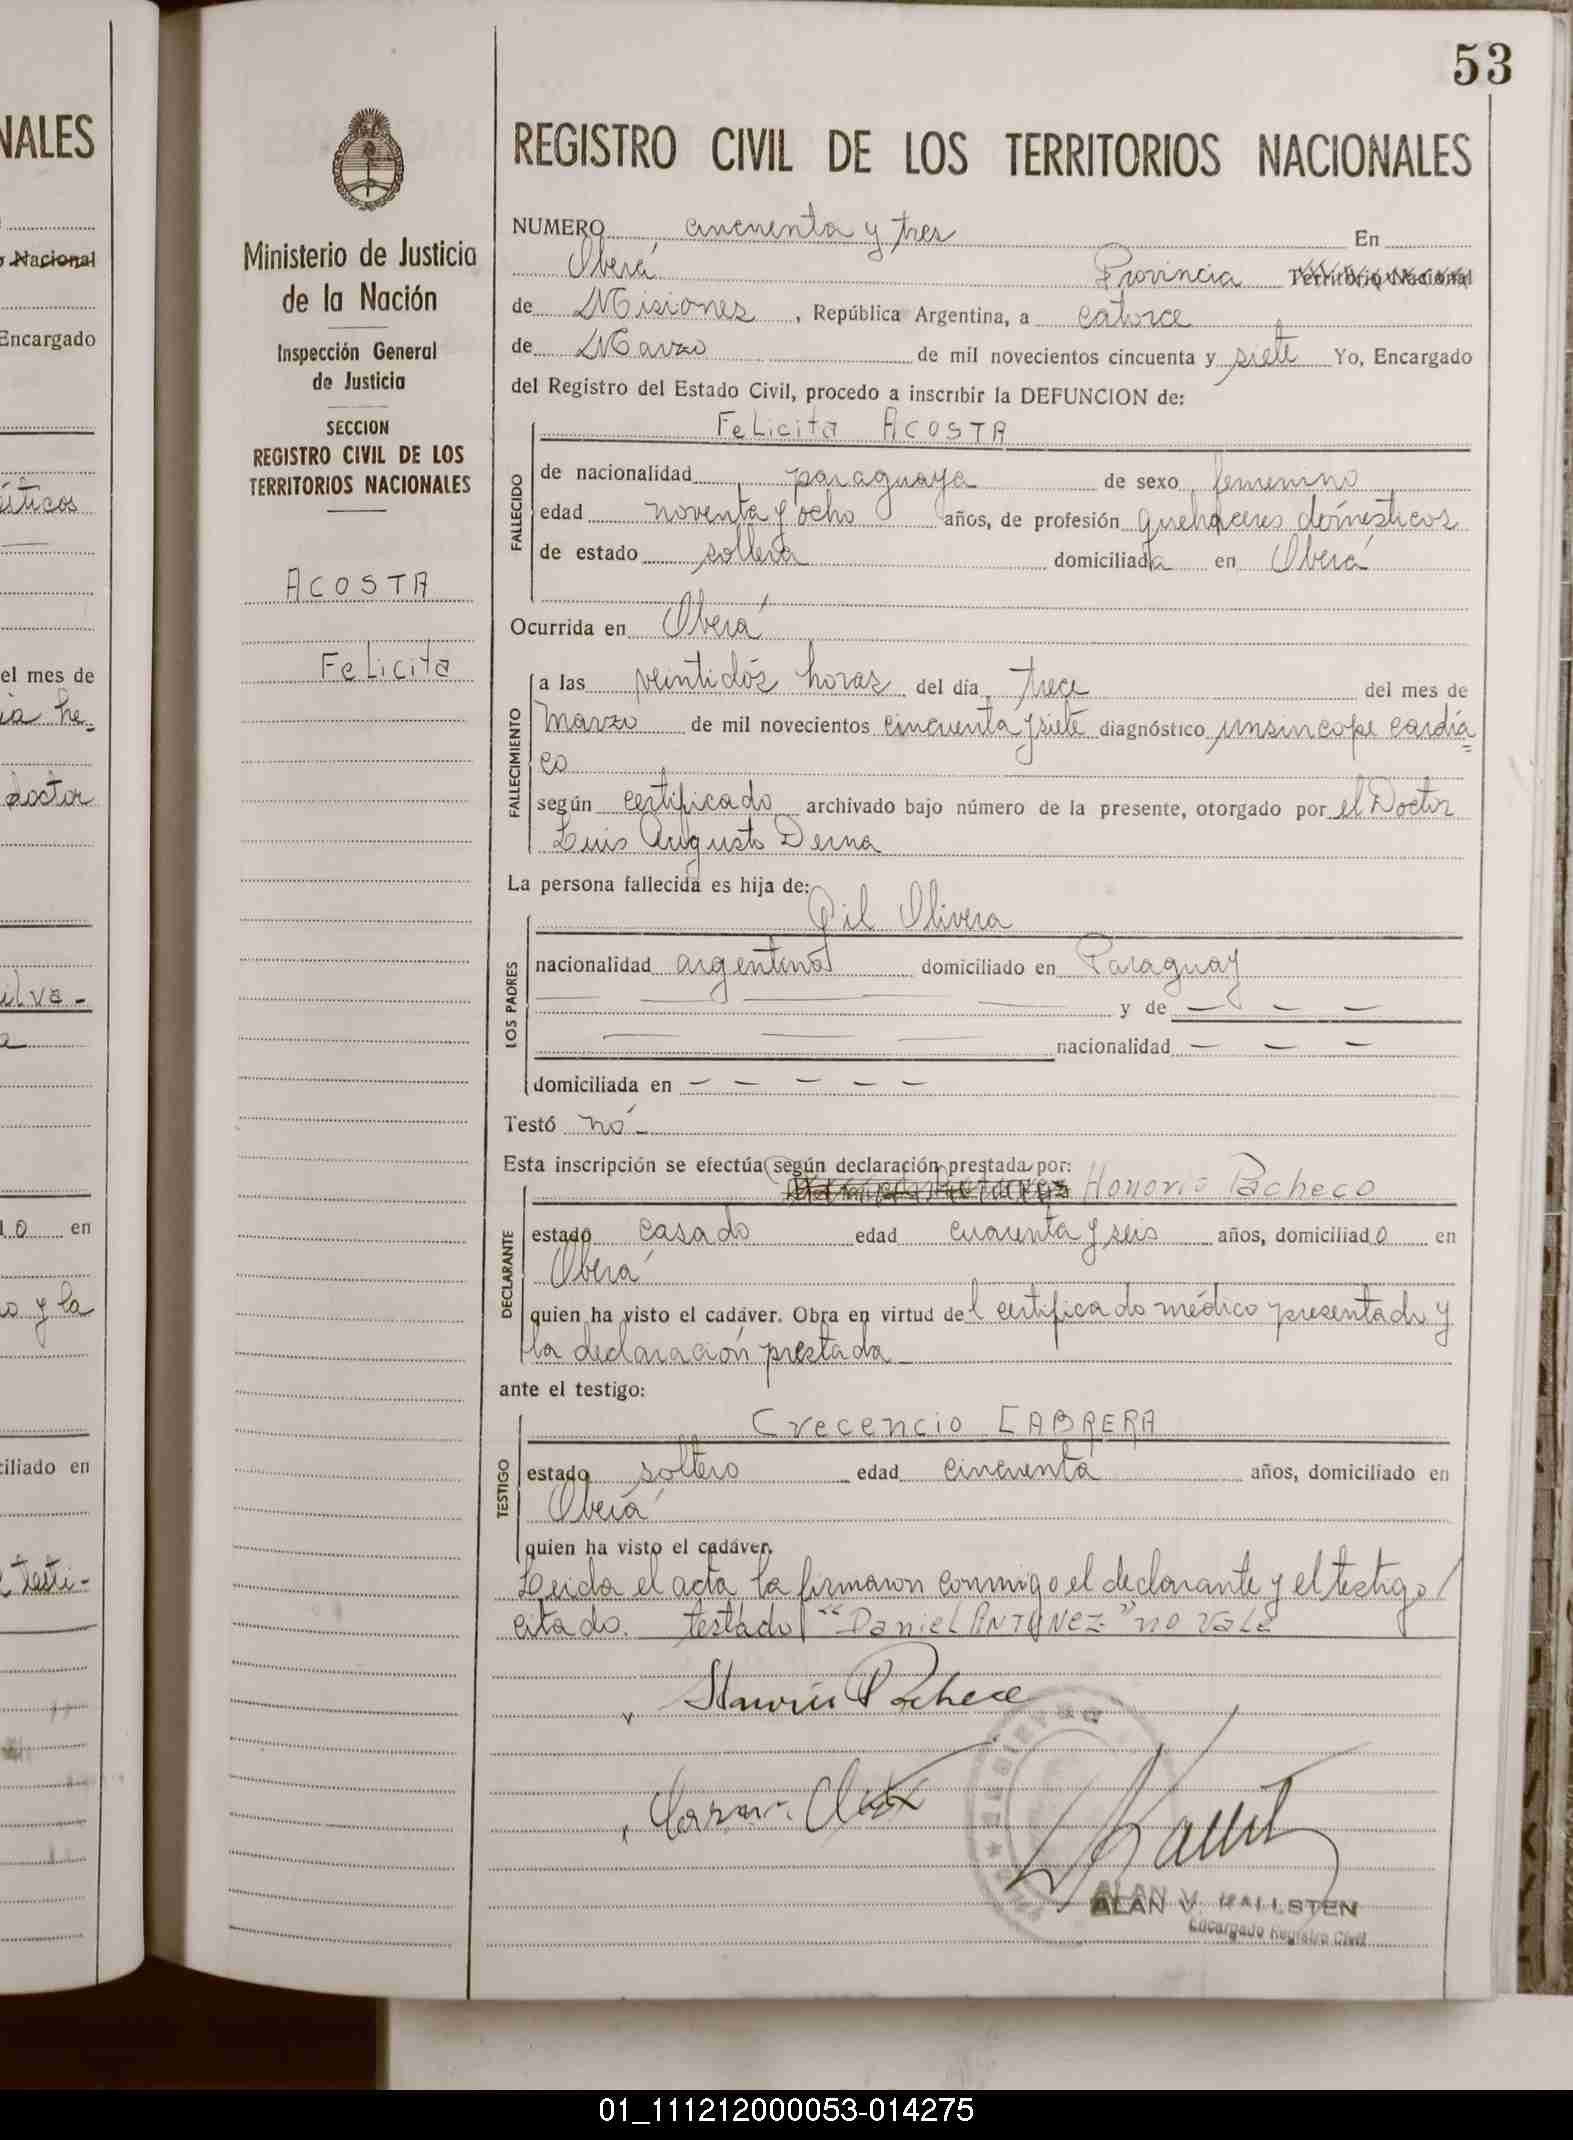 53
NALES
Nacional
Encargado
el mes de
ia he-
doctor
ilva-
a
en
o y la
ciliado en
testi-
Ministerio de Justicia
de la Nación
Inspección General
de Justicia
SECCION
REGISTRO CIVIL DE LOS
TERRITORIOS NACIONALES
ACOSTA
Felicita
REGISTRO CIVIL DE LOS TERRITORIOS NACIONALES
NUMERO cincuenta y tres En
Oberá Provincia Territorio Nacional
de Misiones, República Argentina, a catorce
de Marzo de mil novecientos cincuenta y siete Yo, Encargado
del Registro del Estado Civil, procedo a inscribir la DEFUNCION de:
Felicita ACOSTA
FALLECIDO
de nacionalidad paraguaya de sexo femenino
edad noventa y ocho años, de profesión quehaceres domésticos
de estado soltera domiciliada en Oberá
Ocurrida en Oberá
FALLECIMIENTO
a las veintidós horas del día trece del mes de
marzo de mil novecientos cincuenta y siete diagnóstico un sincope cardía=
co
según certificado archivado bajo número de la presente, otorgado por el Doctor
Luis Augusto Derna
La persona fallecida es hija de:
LOS PADRES
Gil Olivera
nacionalidad argentina domiciliado en Paraguay
— — — — y de — — —
— — — nacionalidad — — —
domiciliada en — — — — —
Testó nó -
Esta inscripción se efectúa según declaración prestada por:
Honorio Pacheco
DECLARANTE
estado casado edad cuarenta y seis años, domiciliado en
Oberá
quien ha visto el cadáver. Obra en virtud del certificado médico presentado y
la declaración prestada
ante el testigo:
Crecencio CABRERA
TESTIGO
estado soltero edad cincuenta años, domiciliado en
Oberá
quien ha visto el cadáver.
Leida el acta la firmaron conmigo el declarante y el testigo/
citado. testado "Daniel ANTUNEZ" no vale
Pacheco
ALAN V. KALLSTEN
Encargado Registro Civil
01_111212000053-014275